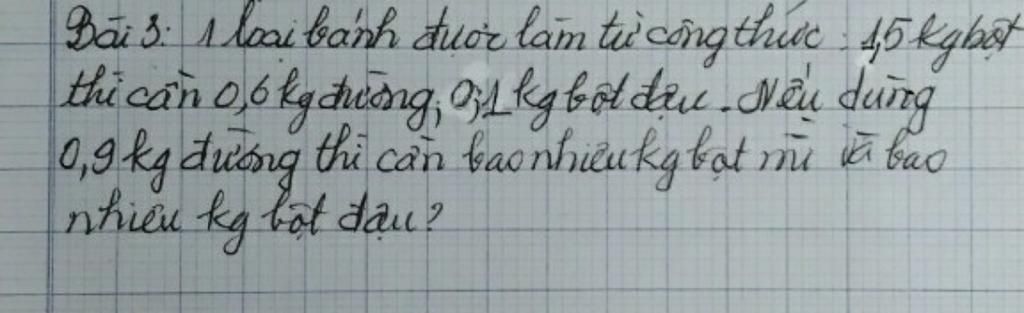 Bài 3: 1 loại bánh được làm từ công thức: 1,5 kg bột
thì cần 0,6 kg đường, 0,1 kg bột đậu. Nếu dùng
0,9 kg đường thì cần bao nhiêu kg bột mì và bao
nhiêu kg bột đậu?